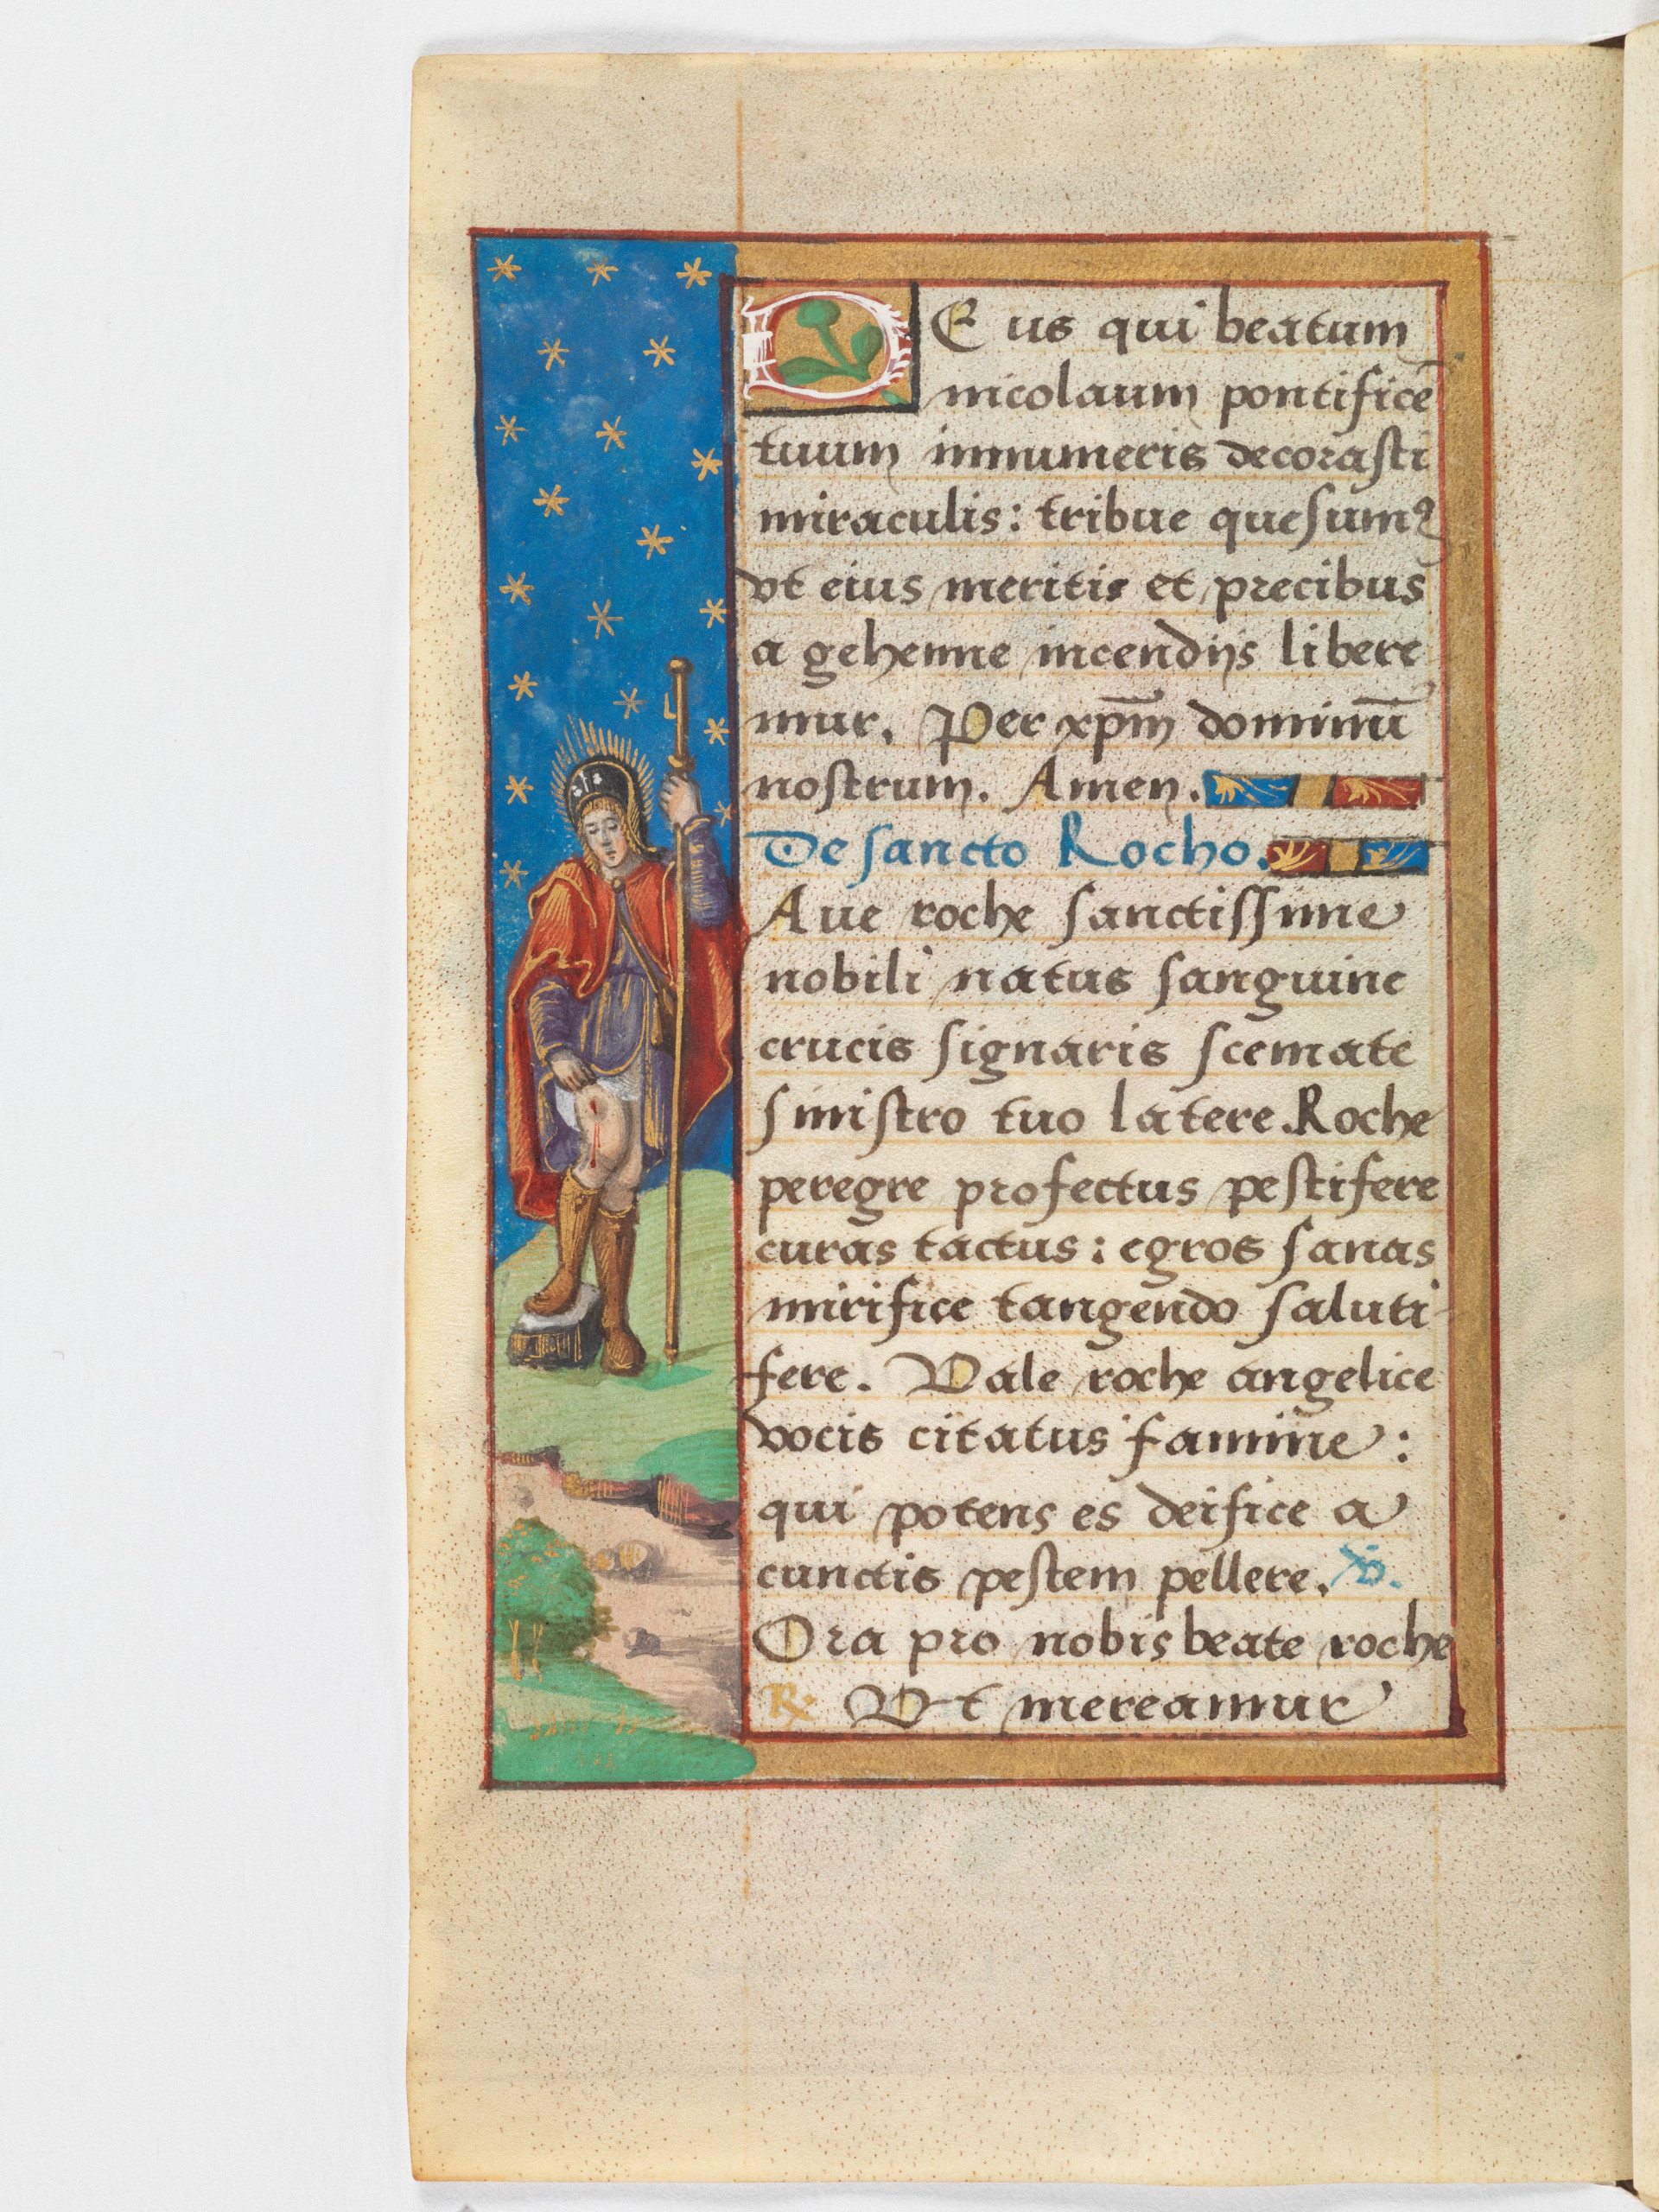 DEus qui beatum
nicolaum pontificē
tuum innumeris decorasti
miraculis: tribue quesumꝰ
vt eius meritis et precibus
a gehenne incendijs libere
mur. Per xp̄m dominū
nostrum. Amen.
De sancto Rocho.
Aue roche sanctissime
nobili natus sanguine
crucis signaris scemate
sinistro tuo latere. Roche
peregre profectus pestifere
curas tactus: egros sanas
mirifice tangendo saluti
fere. Vale roche angelice
vocis citatus famine:
qui potens es deifice a
cunctis pestem pellere. ℣.
Ora pro nobis beate roche
℞ Vt mereamur